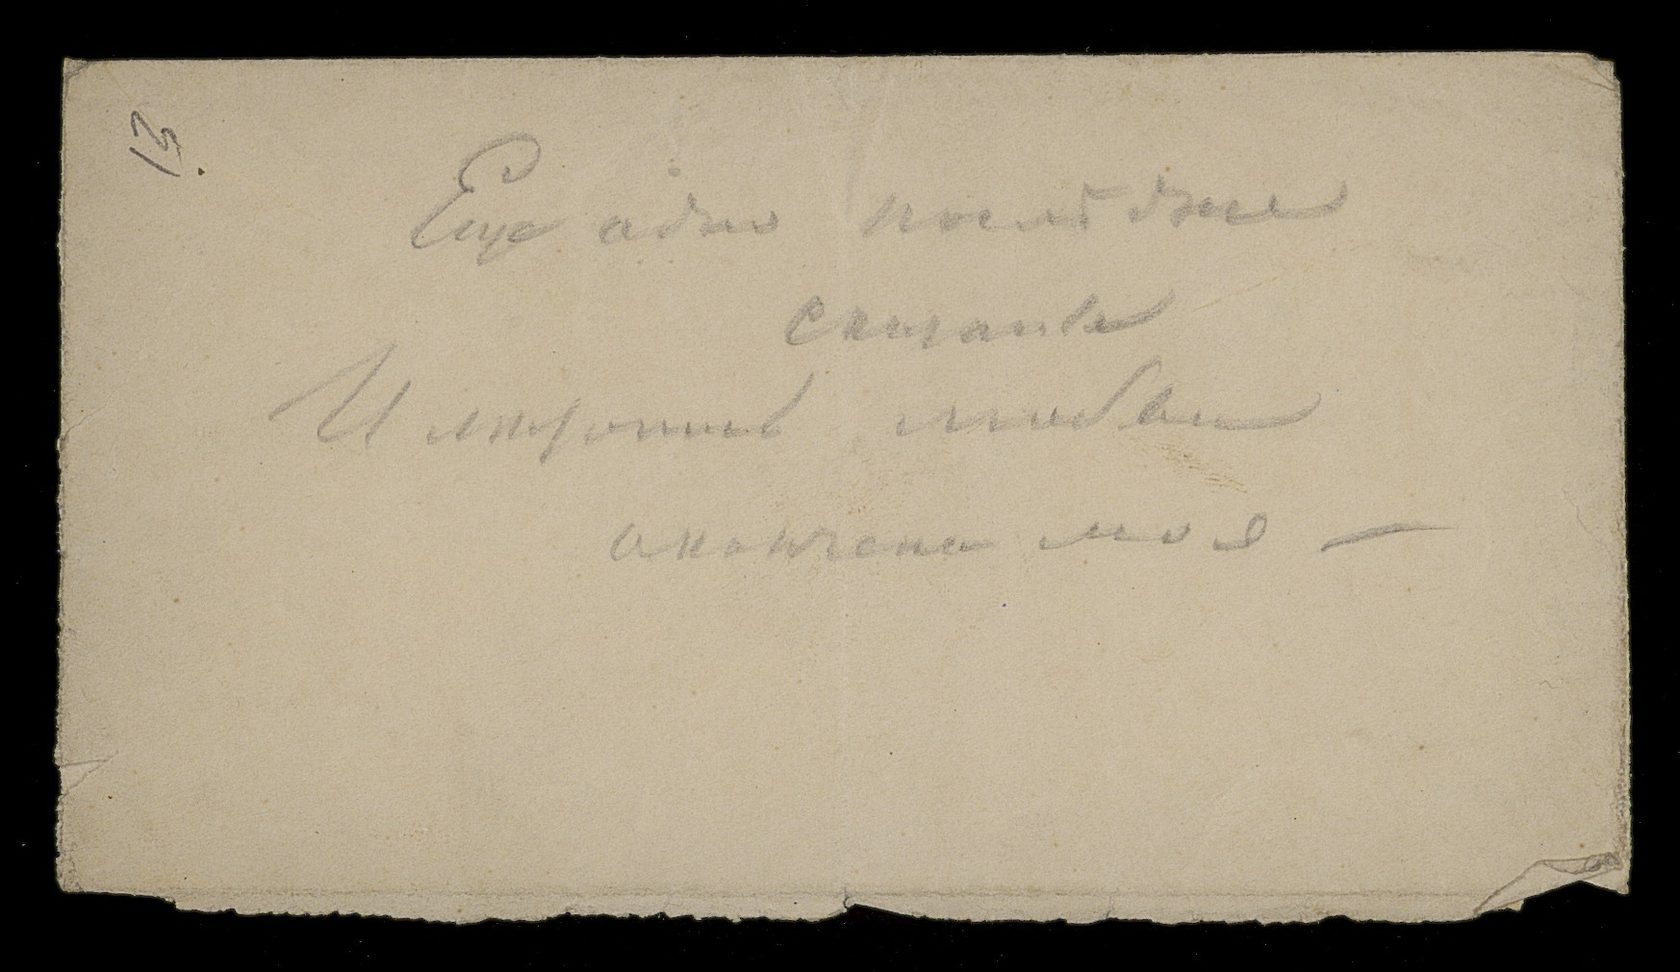 13.
Еще одно послѣднее
сказанье
И лѣтопись
окончена моя —